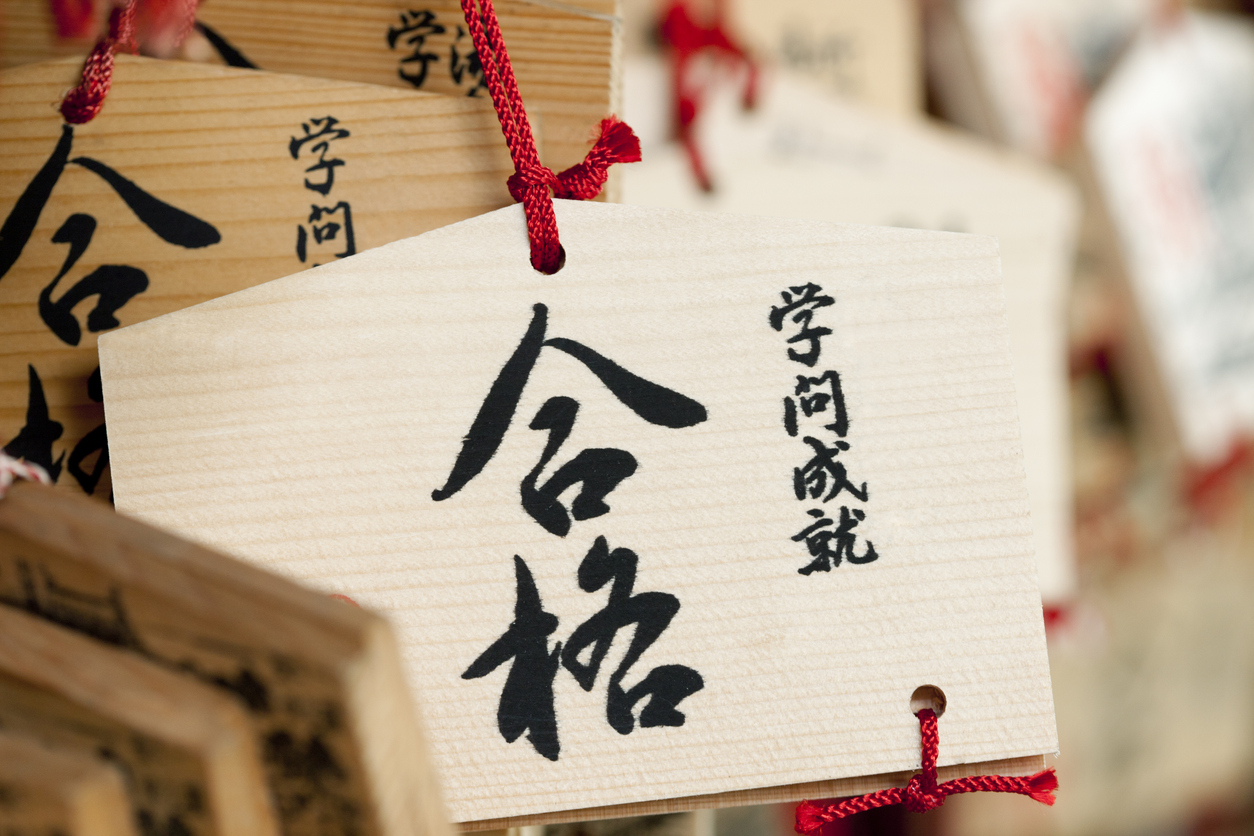 学問成就
合格
学問
合格
学